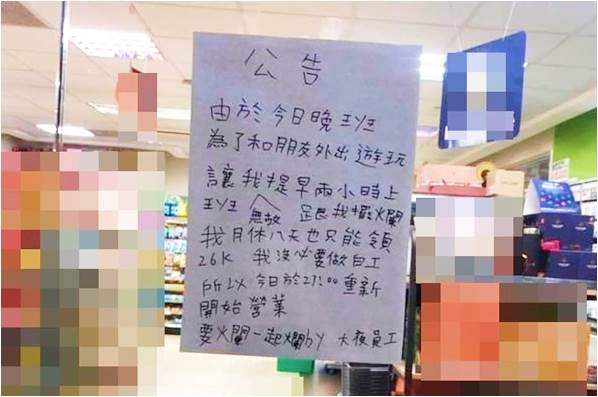 公告
由於今日晚班
為了和朋友外出遊玩
讓我提早兩小時上
班 無故 跟我擺爛
我月休八天也只能領
26K 我沒必要做白工
所以今日於21:00重新
開始營業
要火闌一起爛by 大夜員工